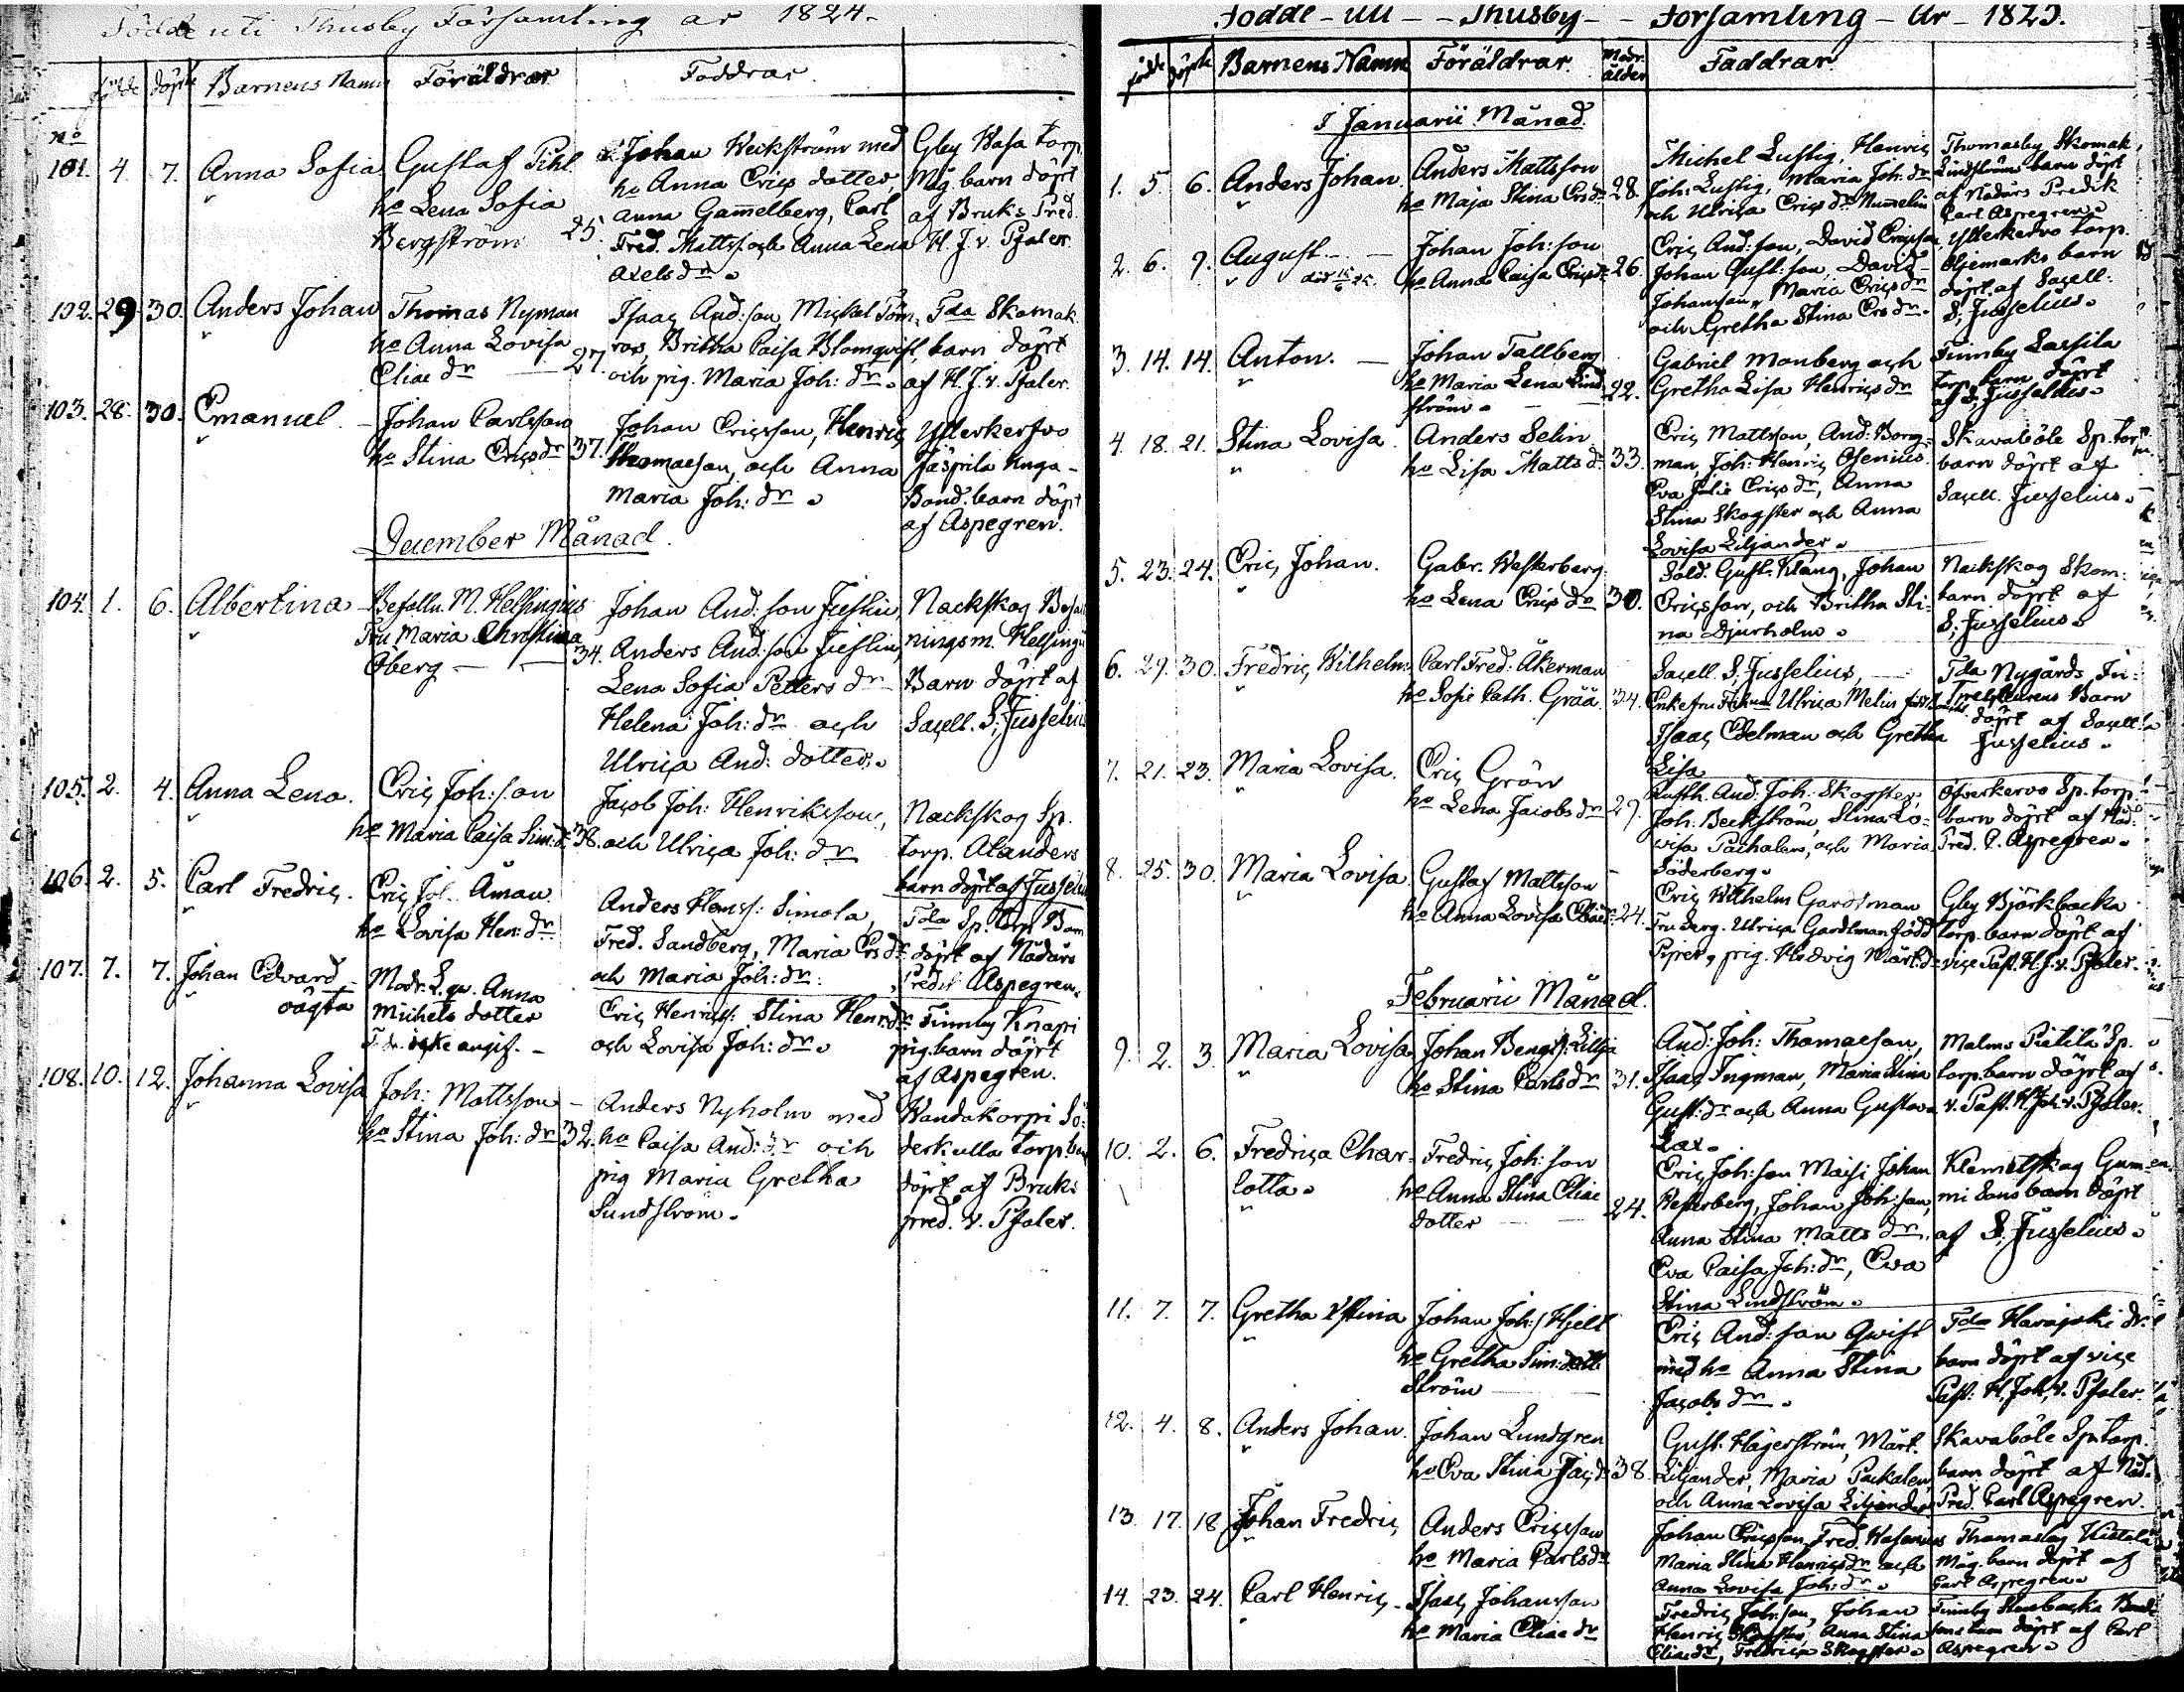 Födde uti Thusby Församling år 1824.
född döpt Barnens Namn Föräldrar Faddrar
No
101. 4. 7. Anna Sofia Gustaf Pihl
ho Lena Sofia
Bergström 25.
Johan Weckström med
ho Anna Erics dotter,
Anna Gammelberg, Carl
Fred. Mattss. och Anna Lena
Axels dr
Gley Wasa torp.
Måg barn döpt
af Bruks Pred.
H. J. v. Pfaler
102. 29 30. Anders Johan Thomas Nyman
ho Anna Lovisa
Eliae dr 27.
Isaac And:son Mickel Töm-
ros, Britha Caisa Blomqvist,
och pig. Maria Joh: dr
Tda Skomak.
barn döpt
af H. J. v. Pfaler.
103. 28. 30. Emanuel. Johan Carlsson
ho Stina Erics dr 37.
Johan Ericsson, Henric
Thomaeson, och Anna
Maria Joh: dr
Ytterkerfvo
Jäspilä unga-
Bond. barn döpt
af Aspegren.
December Månad.
104. 1. 6. Albertina Befalln. M. Helsingius
Fru Maria Christina
Öberg 34.
Johan And:son
Anders And:son
Lena Sofia Petters dr
Helena Joh: dr och
Ulrica And: dotter.
Nackskog
ningsm. Helsingi
Barn döpt af
Sacell. S. Jusselius
105. 2. 4. Anna Lena. Eric Joh:son
ho Maria Caisa Sim: dr 38.
Jacob Joh: Henriksson,
och Ulrica Joh: dr
Nackskog Sp.
torp. Alanders
barn döpt af Jusselius
106. 2. 5. Carl Fredric. Eric Joh. Åman
ho Lovisa Hen: dr
Anders Henrss: Simola,
Fred. Sandberg, Maria Ers dr
och Maria Joh: dr
Tda Sp. torp Barn
döpt af Nådårs
Predik Aspegren.
107. 7. 7. Johan Edvard
oägta
Modr. L. qv. Anna
Michels dotter
angif.
Eric Henrics: Stina Henr: dr
och Lovisa Joh: dr
Finnby Knapi
pig. barn döpt
af Aspegren.
108. 10. 12. Johanna Lovisa Joh: Mattsson
ho Stina Joh: dr 32.
Anders Nyholm med
ho Caisa And: dr och
pig Maria Gretha
Sundström.
Wandakorpi Sö-
derkulla torp. barn
döpt af Bruks
pred. v. Pfaler.
Födde uti Thusby Församling År 1825.
födde döpte Barnens Namn Föräldrar. Modr. ålder Faddrar
I Januarii Månad.
1. 5. 6. Anders Johan. Anders Mattsson
ho Maja Stina Ers dr 28.
Michel Lustig, Henric
Joh: Lustig, Maria Joh: dr
och Ulrica Erics dr Nummelin
Thomasby Skomak.
Lindström barn döpt
af Nådårs Predik
Carl Aspegren
2. 6. 9. August. Johan Joh:son
ho Anna Caisa Erics dr 26.
Eric And:son, David Ericsson,
Johan Gust:son, David
Johansson, Maria Erics dr
och Gretha Stina Ers dr
Ytterkervo torp.
Öljemarks barn
döpt af Sacell:
S. Jusselius
3. 14. 14. Anton. Johan Tallberg
ho Maria Lena Lind-
ström 22.
Gabriel Monberg och
Gretha Lisa Henrics dr
Finnby Lassila
torp. barn döpt
af S. Jusselius
4. 18. 21. Stina Lovisa Anders Selin
ho Lisa Matts dr 33.
Eric Mattsson, And: Borg-
man, Joh: Henric Osenius
Eva Julie Erics dr, Anna
Stina Skogster och Anna
Lovisa Liljander
Skavaböle Sp. torp.
barn döpt af
Sacell. Jusselius
5. 23. 24. Eric Johan. Gabr. Westerberg
ho Lena Erics dr 30.
Sold. Gust. Klang, Johan
Ericsson, och Britha Sti-
na Djurholm
Nackskog Skom.
barn döpt af
S. Jusselius
6. 29. 30. Fredric Wilhelm Carl Fred: Åkerman
ho Sofie Cath. Gråå 34.
Sacell. S. Jusselius,
Enkefru Ulrica Melin
Isaac Edelman och Gretha
Lisa
Tda Nygårds In-
Barn
döpt af Sacell:
Jusselius
7. 21. 23. Maria Lovisa. Eric Grön
ho Lena Jacobs dr 29.
Rusth. And: Joh: Skogster,
Joh. Beckström, Stina Lo-
visa Pachalen, och Maria
Söderberg
Öfverkervo Sp. torp.
barn döpt af Nåd.
Pred. C. Aspegren
8. 25. 30. Maria Lovisa. Gustaf Mattsson
ho Anna Lovisa Eliae dr 24.
Eric Wilhelm Gardtman
Fru Ulrica Gardtman född
Piper, pig. Hedvig Mårt. dr
Gley Björkbacka
torp. barn döpt af
vice Past. H. J. v. Pfaler.
Februarii Månad.
9. 2. 3. Maria Lovisa Johan Bengts: Lillja
ho Stina Carls dr 31.
And: Joh: Thomaeson,
Isaac Ingman, Maria Stina
Gust: dr och Anna Gustava
Lax
Malms Pietilä Sp.
torp. barn döpt af
v. Past. H. Joh. v. Pfaler.
10. 2. 6. Fredrica Char-
lotta
Fredric Joh:son
ho Anna Stina Eliae
dotter 24.
Eric Joh:son Maisi Johan
Westerberg, Johan Joh:son,
Anna Stina Matts dr,
Eva Caisa Joh: dr, Eva
Stina Lindström
Klemetskog Gum-
mi Sons barn döpt
af S. Jusselius
11. 7. 7. Gretha Stina Johan Joh:s Hjelt
ho Gretha Sim: dott.
Ström
Eric And:son Qwist
med ho Anna Stina
Jacobs dr
Tda Harajoki
barn döpt af vice
Past. H. Joh. v. Pfaler.
12. 4. 8. Anders Johan. Johan Lundgren
ho Eva Stina Jac. dr 38.
Gust. Hägerström, Mårt.
Liljander, Maria Packalen,
och Anna Lovisa Liljander
Skavaböle Sp. torp.
barn döpt af Nåd.
Pred. Carl Aspegren.
13. 17. 18 Johan Fredric Anders Ericsson
ho Maria Carls dr
Johan Ericsson, Fred. Wasenius
Maria Stina Henrics dr och
Anna Lovisa Joh: dr
Thomasby
Måg. barn döpt af
Carl Aspegren
14. 23. 24. Carl Henric Isaac Johansson
ho Maria Eliae dr
Fredric Joh:son, Johan
Henric Skogster, Anna Stina
Eliae dr, Fredrica Skogster
Finnby Stenbacka
barn döpt af Carl
Aspegren